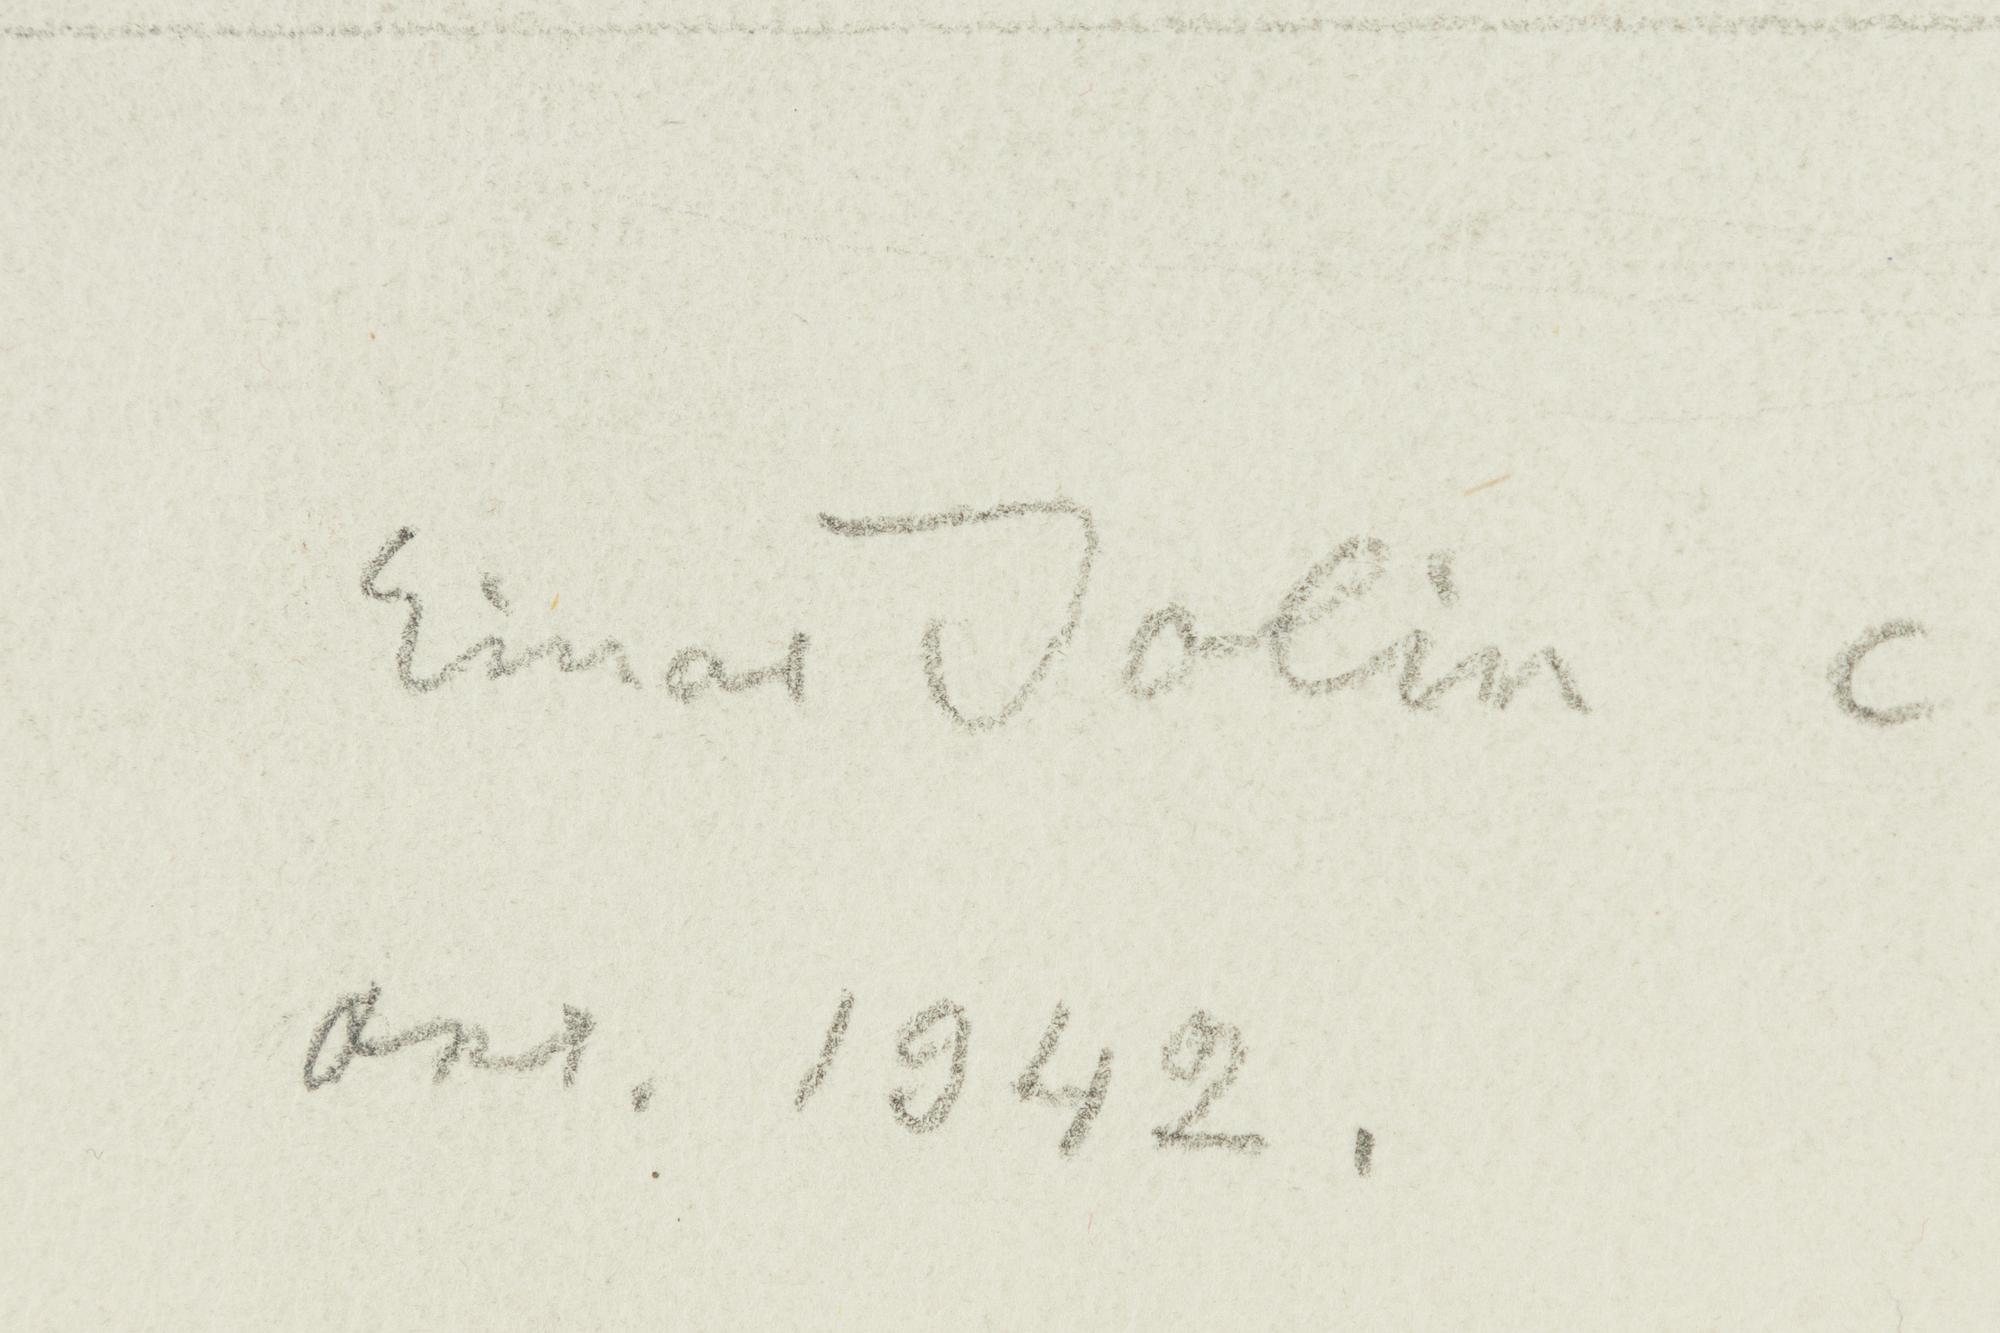 Einar Jolin c
ant. 1942.